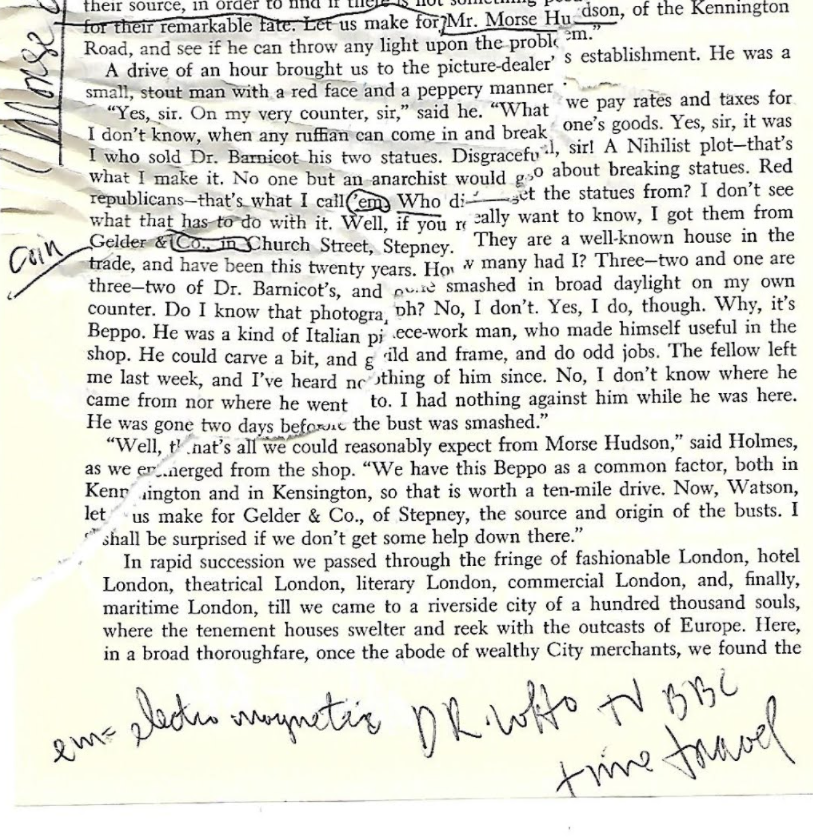 their source, in order to find if there is not something
for their remarkable fate. Let us make for Mr. Morse Hudson, of the Kennington
Road, and see if he can throw any light upon the problem."
A drive of an hour brought us to the picture-dealer's establishment. He was a
small, stout man with a red face and a peppery manner.
"Yes, sir. On my very counter, sir," said he. "What we pay rates and taxes for
I don't know, when any ruffian can come in and break one's goods. Yes, sir, it was
I who sold Dr. Barnicot his two statues. Disgraceful, sir! A Nihilist plot—that's
what I make it. No one but an anarchist would go about breaking statues. Red
republicans—that's what I call 'em. Who di get the statues from? I don't see
what that has to do with it. Well, if you really want to know, I got them from
Coin
Gelder & Co., in Church Street, Stepney. They are a well-known house in the
trade, and have been this twenty years. How many had I? Three—two and one are
three—two of Dr. Barnicot's, and one smashed in broad daylight on my own
counter. Do I know that photograph? No, I don't. Yes, I do, though. Why, it's
Beppo. He was a kind of Italian piece-work man, who made himself useful in the
shop. He could carve a bit, and gild and frame, and do odd jobs. The fellow left
me last week, and I've heard nothing of him since. No, I don't know where he
came from nor where he went to. I had nothing against him while he was here.
He was gone two days before the bust was smashed."
"Well, that's all we could reasonably expect from Morse Hudson," said Holmes,
as we emerged from the shop. "We have this Beppo as a common factor, both in
Kennington and in Kensington, so that is worth a ten-mile drive. Now, Watson,
let us make for Gelder & Co., of Stepney, the source and origin of the busts. I
shall be surprised if we don't get some help down there."
In rapid succession we passed through the fringe of fashionable London, hotel
London, theatrical London, literary London, commercial London, and, finally,
maritime London, till we came to a riverside city of a hundred thousand souls,
where the tenement houses swelter and reek with the outcasts of Europe. Here,
in a broad thoroughfare, once the abode of wealthy City merchants, we found the
Morse
em= electro magnetix DR. Who TV BBC
time travel